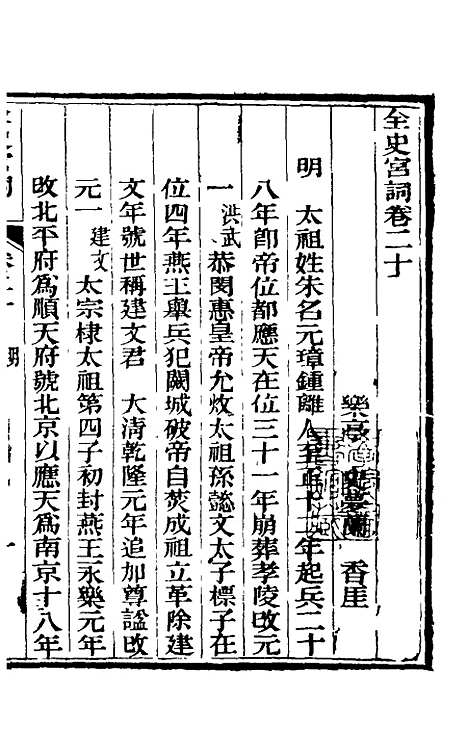 全史宮詞卷二十
樂亭 史夢蘭 香厓
明 太祖姓朱名元璋鍾離人至正十二年起兵二十
八年卽帝位都應天在位三十一年崩葬孝陵改元
一 洪武 恭閔惠皇帝允炆太祖孫懿文太子標子在
位四年燕王舉兵犯闕城破帝自焚成祖立革除建
文年號世稱建文君 大淸乾隆元年追加尊諡改
元一 建文 太宗棣太祖第四子初封燕王永樂元年
改北平府爲順天府號北京以應天爲南京十八年